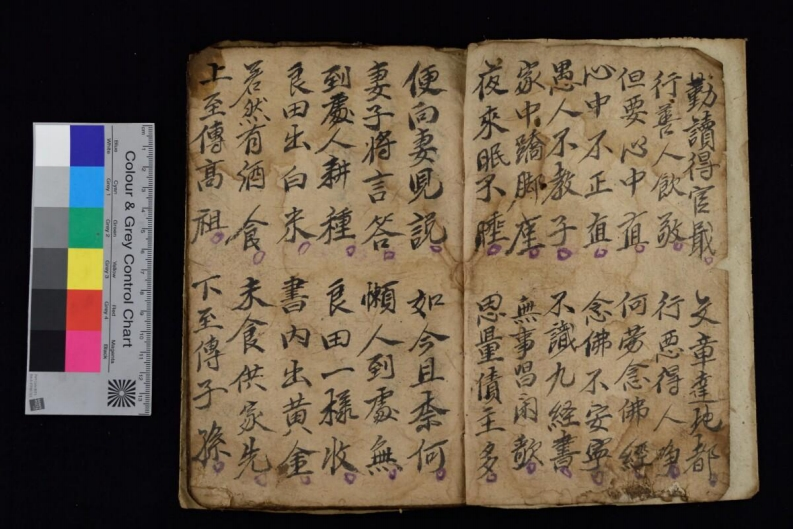 勤讀得官 文章達地都
行善人飲敬 行悪得人
但要心中直 何勞念佛經
心中不正直 念佛不安寧
愚人不教子 不識九経書
家中蹺脚座 無事唱閑歌
夜來眠不睡 思量債主多
便向妻兒説 如今且奈何
妻子將言答 懶人到處無
到處人耕種 良田一樣收
良田出白米 書内出黄金
若然有酒食 未食供家先
上至傳高祖 下至傳子孫
Colour & Grey Control Chart
Blue Cyan Green Yellow Red Magenta
White Grey 1 Grey 2 Grey 3 Grey 4 Black